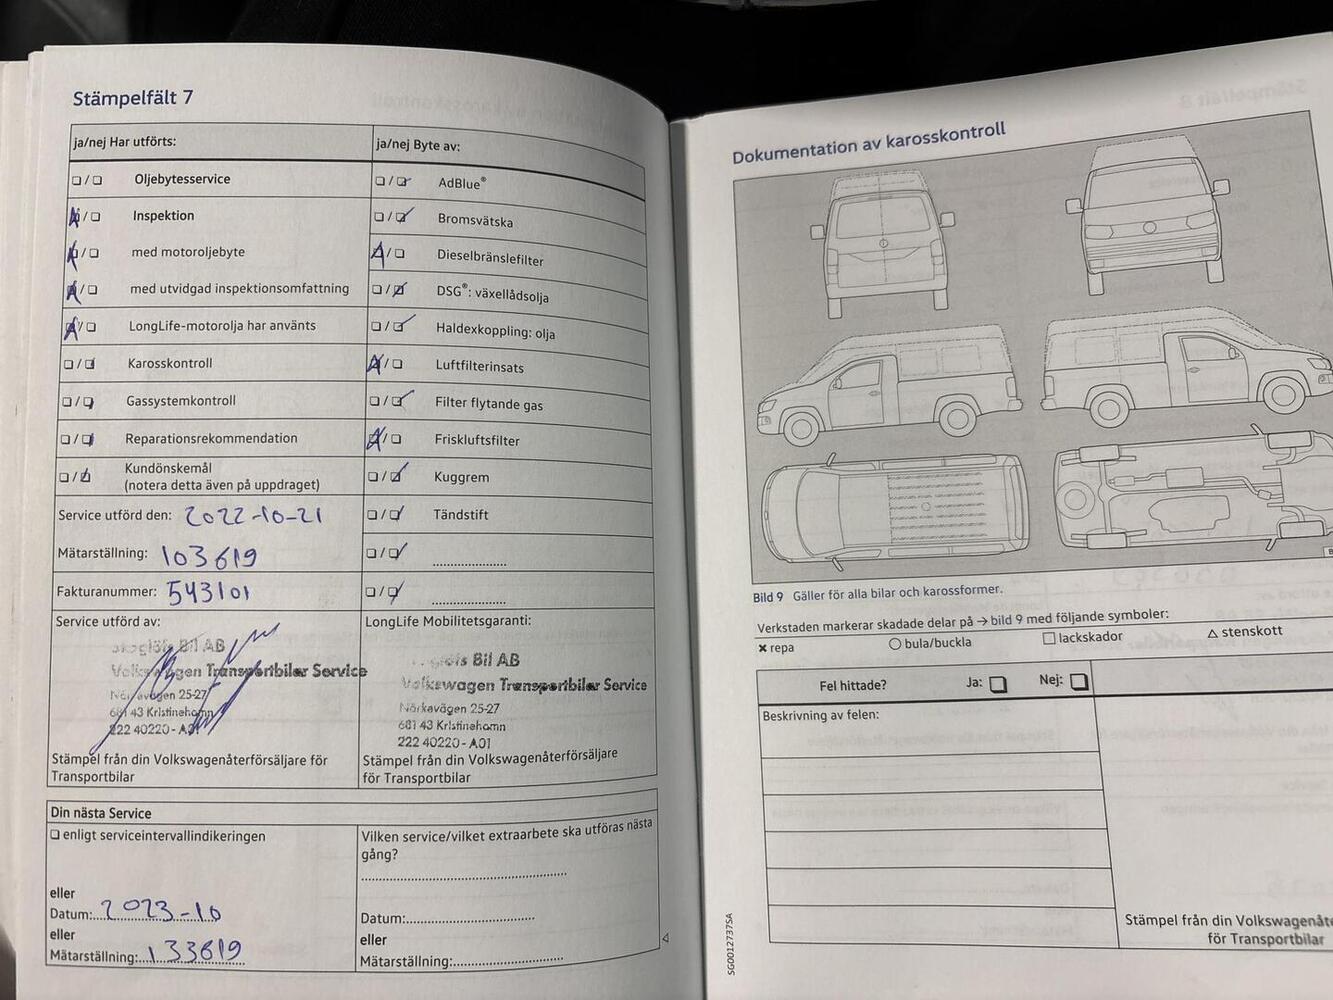 Stämpelfält 7
ja/nej Har utförts:
Oljebytesservice
Inspektion
med motoroljebyte
med utvidgad inspektionsomfattning
LongLife-motorolja har använts
Karosskontroll
Gassystemkontroll
Reparationsrekommendation
Kundönskemål
(notera detta även på uppdraget)
Service utförd den: 2022-10-21
Mätarställning: 103619
Fakturanummer: 543101
ja/nej Byte av:
AdBlue®
Bromsvätska
Dieselbränslefilter
DSG®: växellådsolja
Haldexkoppling: olja
Luftfilterinsats
Filter flytande gas
Friskluftsfilter
Kuggrem
Tändstift
Service utförd av:
Bil AB
Volkswagen Transportbilar Service
25-27
681 43 Kristinehamn
222 40220 - A01
Stämpel från din Volkswagenåterförsäljare för
Transportbilar
LongLife Mobilitetsgaranti:
Bil AB
Volkswagen Transportbilar Service
Närkevägen 25-27
681 43 Kristinehamn
222 40220 - A01
Stämpel från din Volkswagenåterförsäljare
för Transportbilar
Din nästa Service
enligt serviceintervallindikeringen
eller
Datum: 2023-10
eller
Mätarställning: 133619
Vilken service/vilket extraarbete ska utföras nästa
gång?
Datum:
eller
Mätarställning:
Dokumentation av karosskontroll
Bild 9 Gäller för alla bilar och karossformer.
Verkstaden markerar skadade delar på → bild 9 med följande symboler:
× repa
○ bula/buckla
□ lackskador
△ stenskott
Fel hittade? Ja: Nej:
Beskrivning av felen:
Stämpel från din Volkswagenåte
för Transportbilar
SG0012737SA